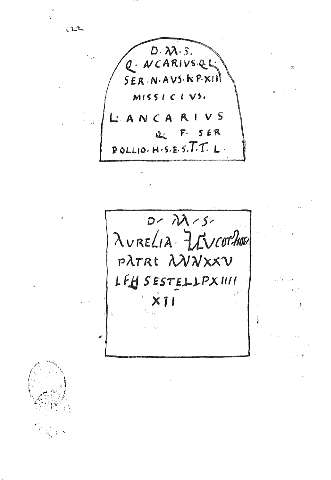 D. M. S.
Q. ANCARIVS. Q. L.
SER. N. AVS. K. P. XIII
MISSICIVS.
L. ANCARIVS
Q F. SER
POLLIO. H. S. E. S. T. T. L.
D. M. S.
AVRELIA
PATRI ANNXXV
LFH SESTELLPXIIII
XII